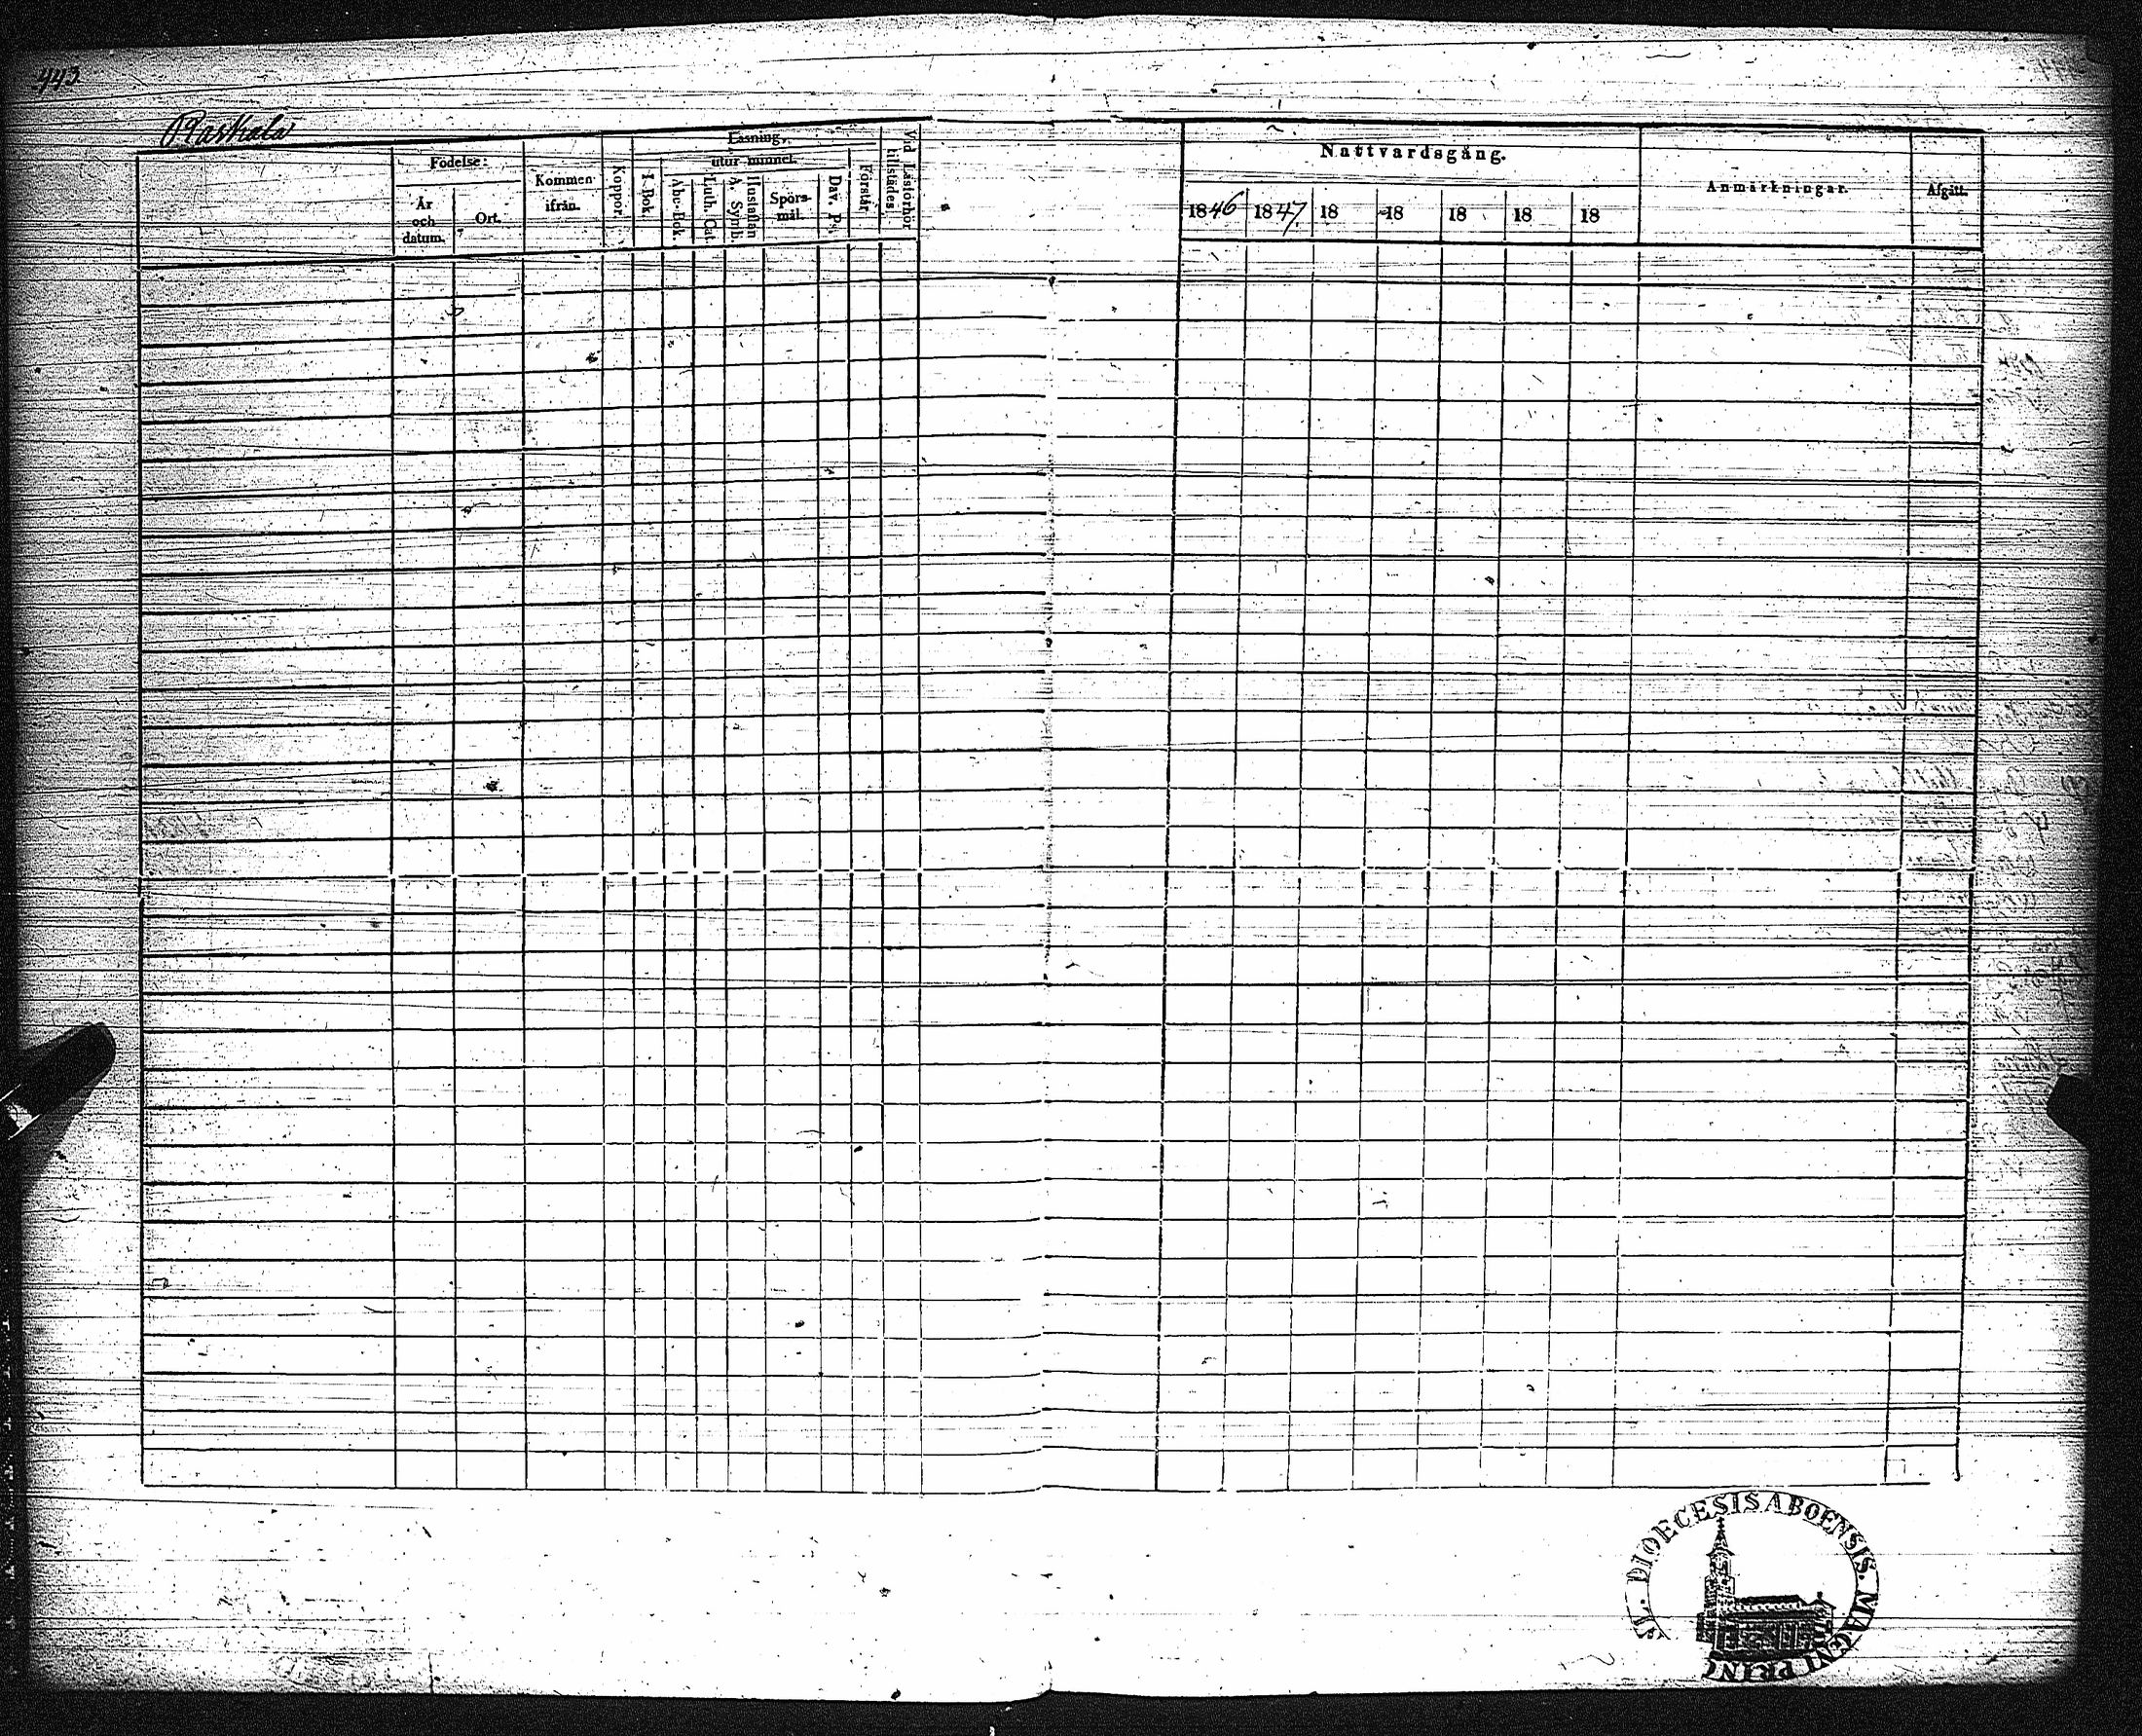 443
Raskala
Födelse:
År och datum.
Ort.
Kommen ifrån.
Koppor.
Läsning,
utur minnet.
I. Bok.
Abc-Bok.
Luth. Cat.
Hustaflan A. Symb.
Spörs-mål.
Dav. Ps.
Förstår
Vid Läsförhör tillstädes
Nattvardsgång.
1846 1847 18 18 18 18 18
Anmärkningar.
Afgått.
DIOECESIS ABOENSIS. MAGNI PRINC